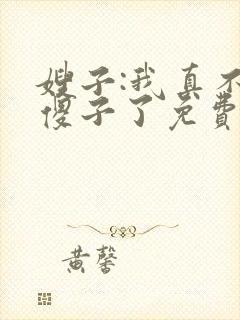 嫂子:我真不
傻子了免费
黄馨